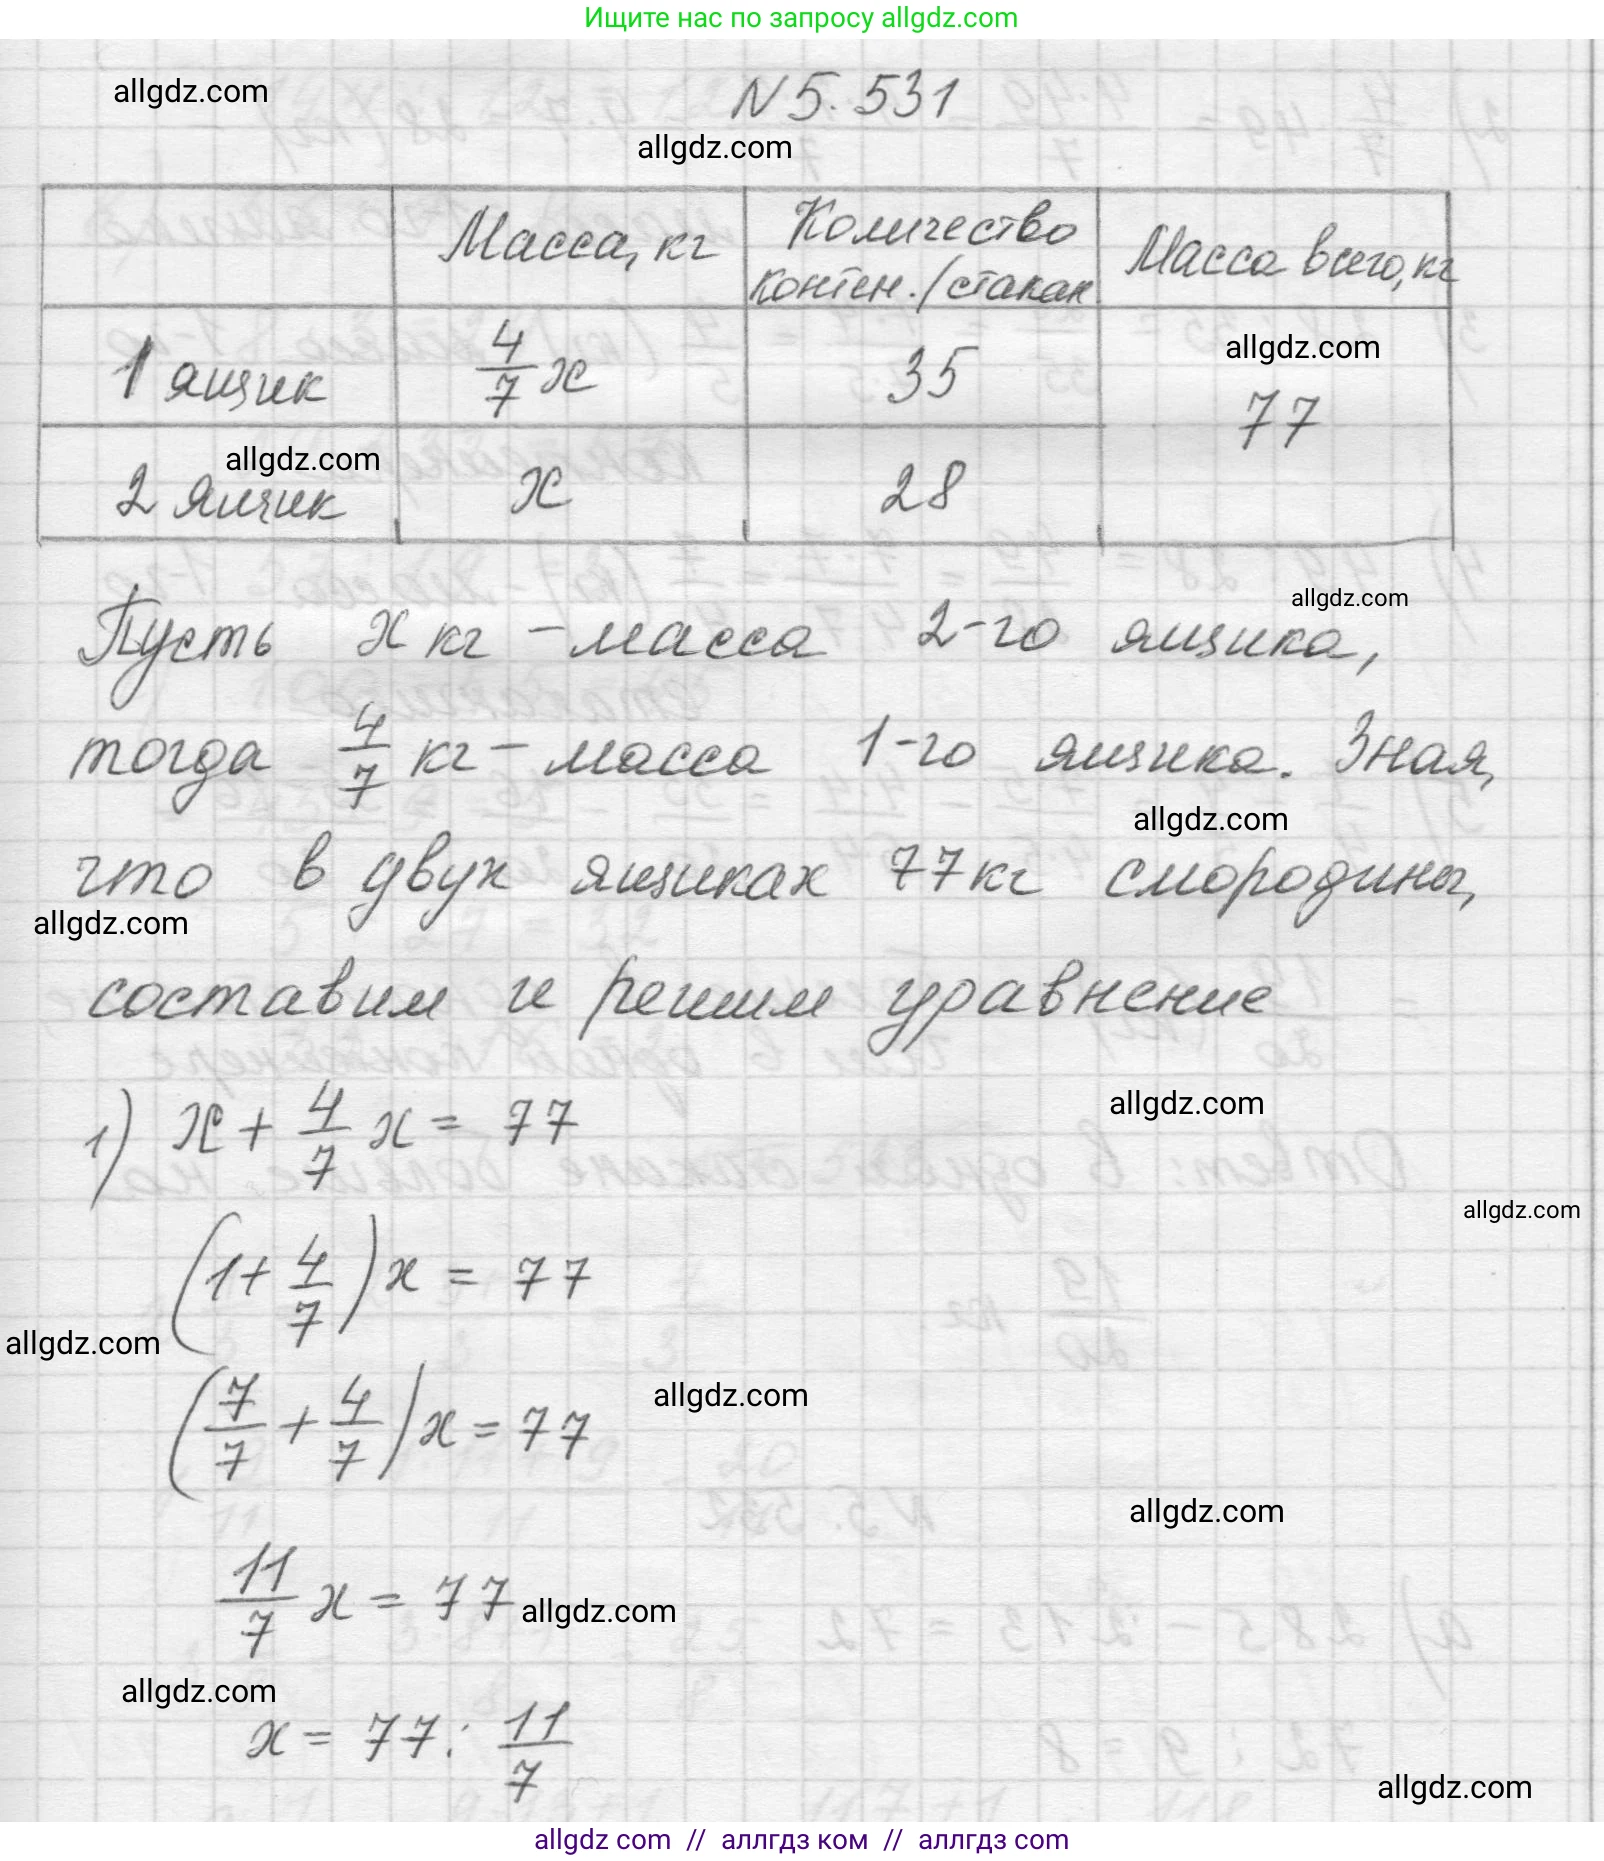 Ищите нас по запросу allgdz.com
allgdz.com
N 5. 531
allgdz.com
Масса, кг
Количество контен./стакан.
Масса всего, кг
1 ящик
4/7 x
35
allgdz.com
77
allgdz.com
2 ящик
x
28
allgdz.com
Пусть x кг – масса 2-го ящика,
тогда 4/7 кг – масса 1-го ящика. Зная,
allgdz.com
что в двух ящиках 77 кг смородины,
allgdz.com
составим и решим уравнение
allgdz.com
1) x + 4/7 x = 77
allgdz.com
(1 + 4/7) x = 77
allgdz.com
allgdz.com
(7/7 + 4/7) x = 77
allgdz.com
11/7 x = 77
allgdz.com
allgdz.com
x = 77 : 11/7
allgdz.com
allgdz com // аллгдз ком // аллгдз com